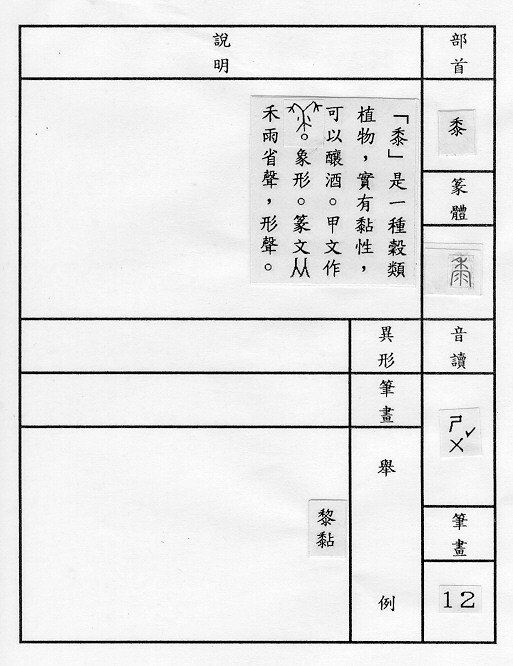 部首
黍
篆體
音讀
ㄕㄨˇ
筆畫
12
說明
「黍」是一種穀類
植物，實有黏性，
可以釀酒。甲文作
。象形。篆文从
禾雨省聲，形聲。
異形
筆畫
舉例
黎黏